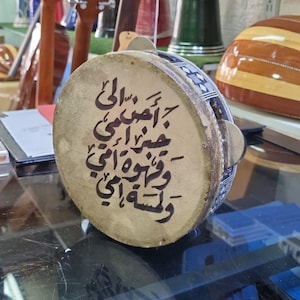 أحن إلى
خبز أمي
وقهوة أمي
ولمسة أمي